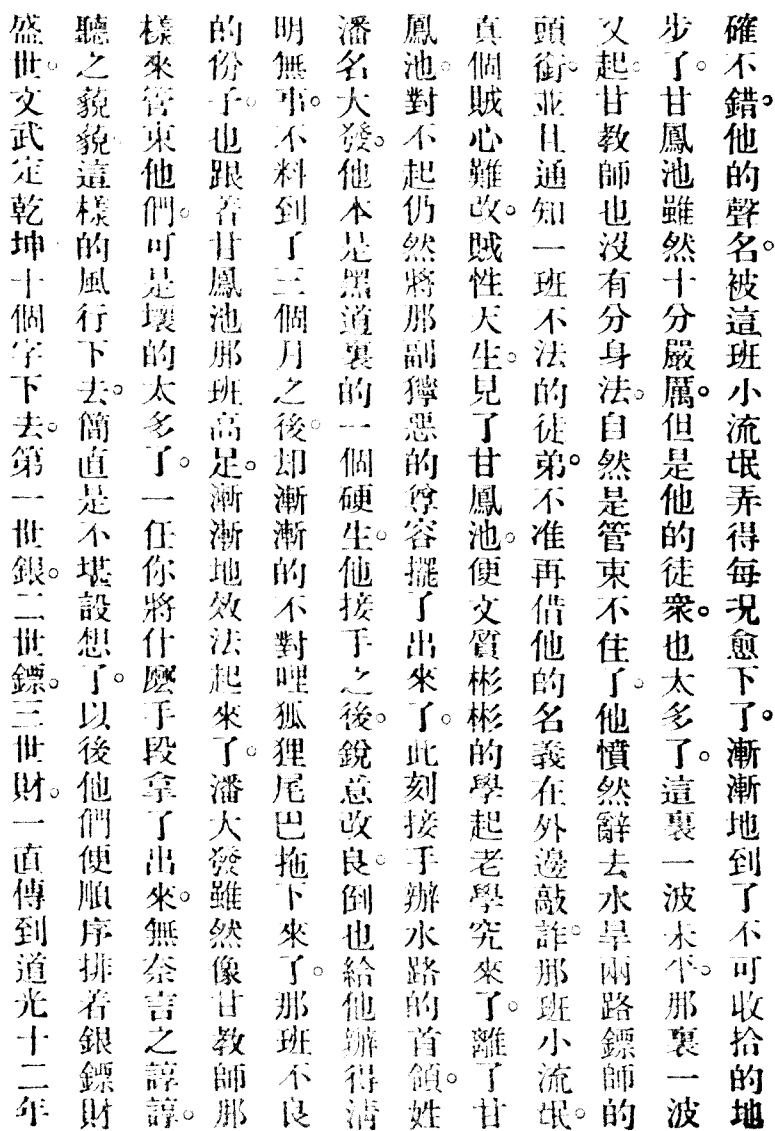 確不錯。他的聲名。被這班小流氓弄得每況愈下了。漸漸地到了不可收拾的地
步了。甘鳳池雖然十分嚴厲。但是他的徒衆。也太多了。這裏一波未平。那裏一波
又起。甘教師也沒有分身法。自然是管束不住了。他憤然辭去水旱兩路鏢師的
頭銜。並且通知一班不法的徒弟。不准再借他的名義在外邊敲詐。那班小流氓。
真個賊心難改。賊性天生。見了甘鳳池。便文質彬彬的學起老學究來了。離了甘
鳳池。對不起仍然將那副獰惡的尊容擺了出來了。此刻接手辦水路的首領。姓
潘名大發。他本是黑道裏的一個硬生。他接手之後。銳意改良。倒也給他辦得清
明無事。不料到了三個月之後。却漸漸的不對哩狐狸尾巴拖下來了。那班不良
的份子。也跟着甘鳳池那班高足。漸漸地效法起來了。潘大發雖然像甘教師那
樣來管束他們。可是壞的太多了。一任你將什麼手段拿了出來。無奈言之諄諄。
聽之藐藐。這樣的風行下去。簡直是不堪設想了。以後他們便順序排着銀鏢財
盛世。文武定乾坤十個字下去。第一世銀。二世鏢。三世財。一直傳到道光十二年